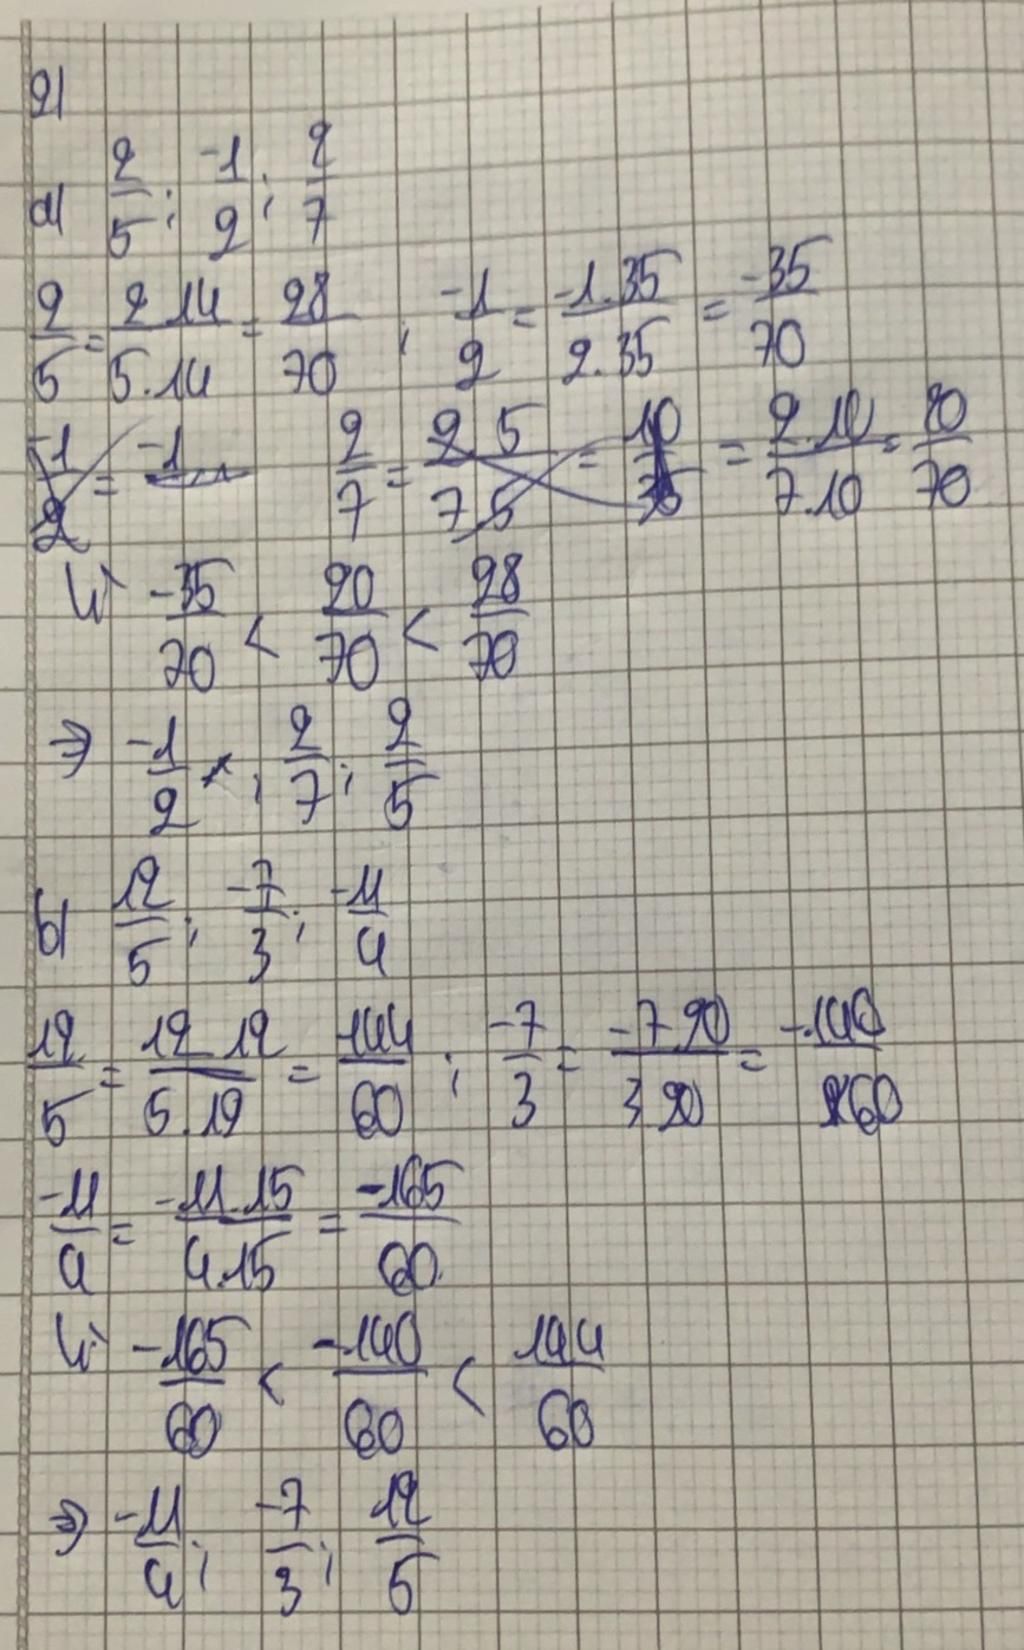 2)
a) 2/5 ; -1/2 ; 2/7
2/5 = 2.14/5.14 = 28/70 ; -1/2 = -1.35/2.35 = -35/70
-1/2 = -1 2/7 = 2 5/7 5 = 10/35 = 2.10/7.10 = 20/70
Vì -35/70 < 20/70 < 28/70
=> -1/2 ; 2/7 ; 2/5
b) 12/5 ; -7/3 ; -11/4
12/5 = 12 12/5.12 = 144/60 ; -7/3 = -7 20/3 20 = -140/60
-11/4 = -11.15/4.15 = -165/60
Vì -165/60 < -140/60 < 144/60
=> -11/4 ; -7/3 ; 12/5